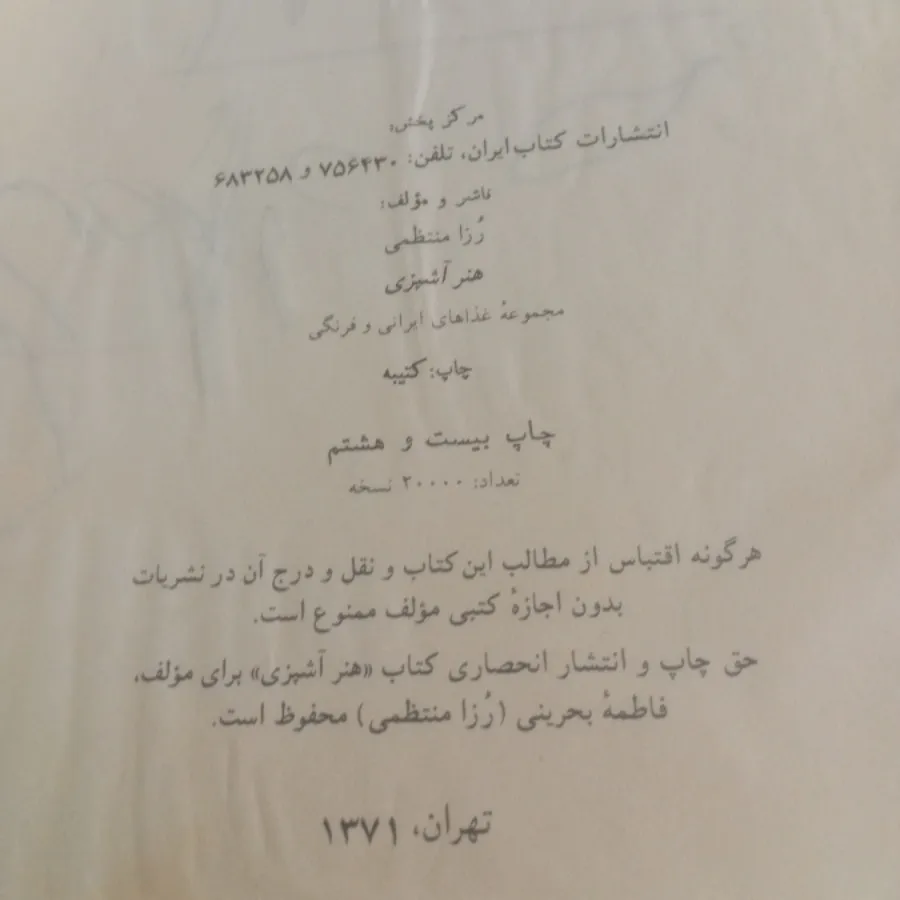 مرکز پخش:
انتشارات کتاب ایران، تلفن: ۷۵۶۴۳۰ و ۶۸۳۲۵۸
ناشر و مؤلف:
رُزا منتظمی
هنر آشپزی
مجموعهٔ غذاهای ایرانی و فرنگی
چاپ: کتیبه
چاپ بیست و هشتم
تعداد: ۲۰۰۰۰ نسخه
هرگونه اقتباس از مطالب این کتاب و نقل و درج آن در نشریات
بدون اجازهٔ کتبی مؤلف ممنوع است.
حق چاپ و انتشار انحصاری کتاب «هنر آشپزی» برای مؤلف،
فاطمهٔ بحرینی (رُزا منتظمی) محفوظ است.
تهران، ۱۳۷۱